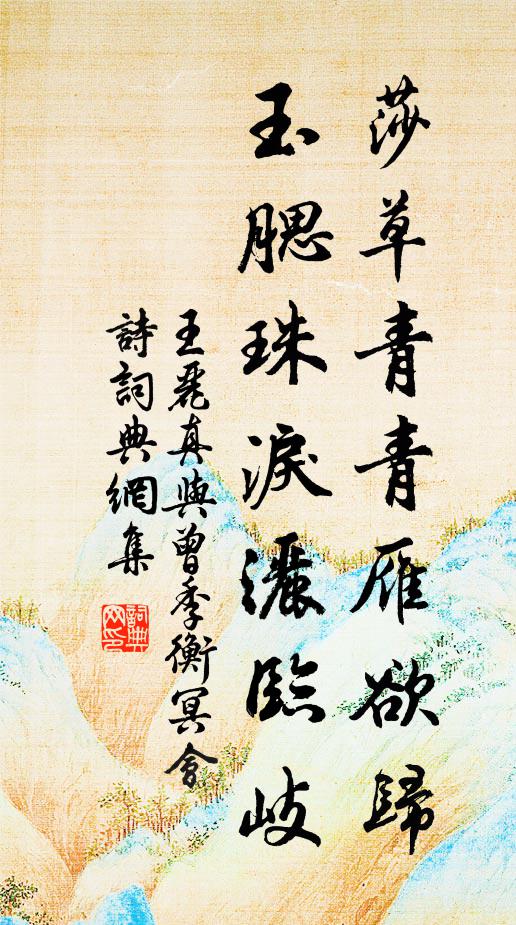 莎草青青雁欲歸
玉腮珠淚灑臨岐
王麗真與曾季衡冥會
詩詞典網集